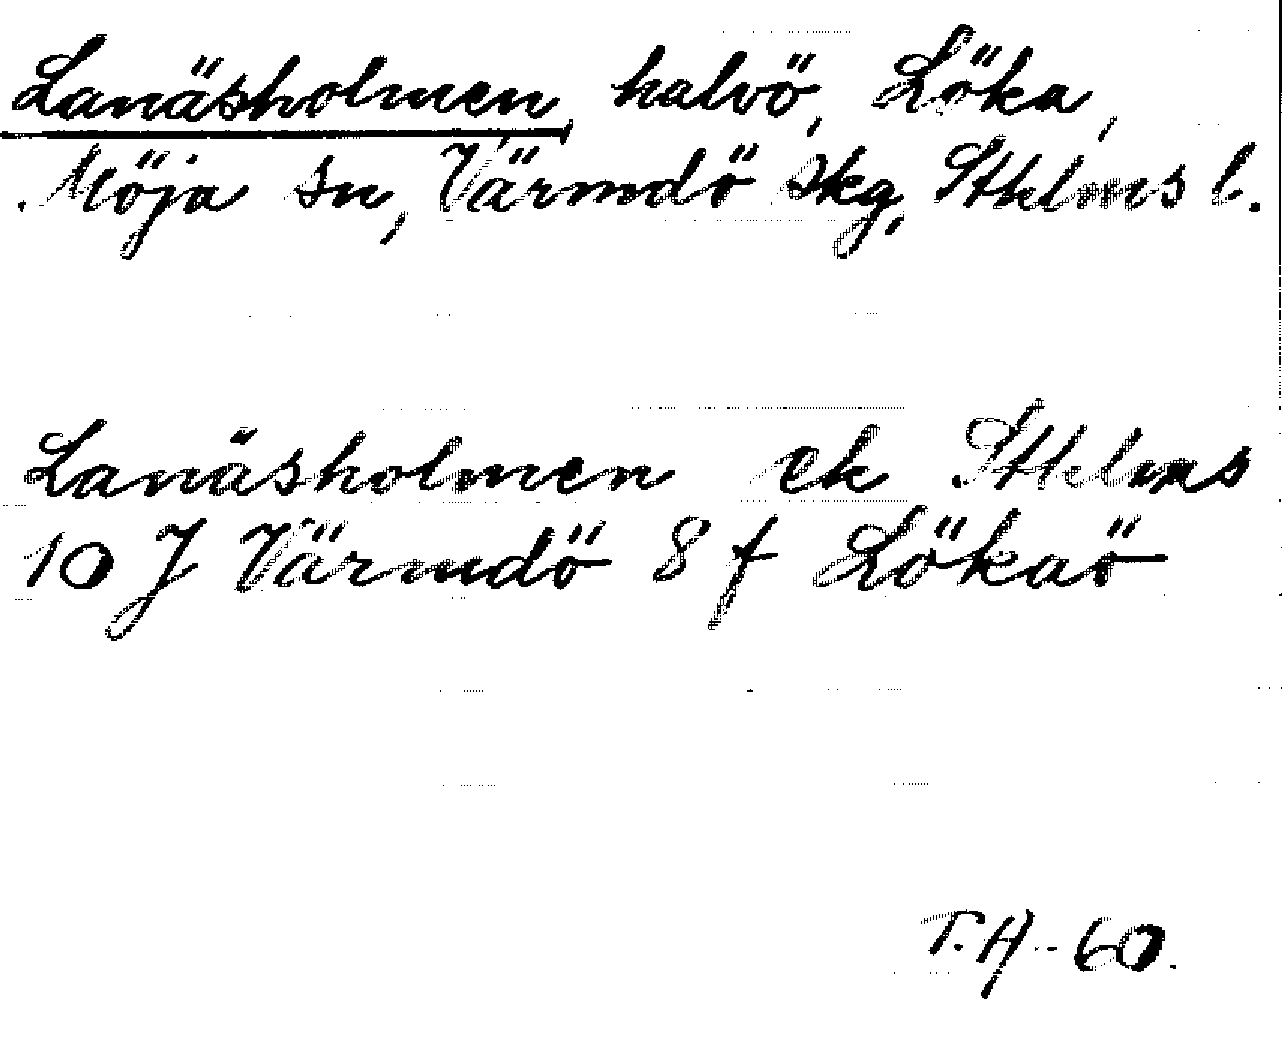 Lanäsholmen, halvö, Löka,
Möja sn, Värmdö skg, Sthlms l.
Lanäsholmen ek Sthlms
10 J Värmdö 8 f Lökaö
T.H. -60.